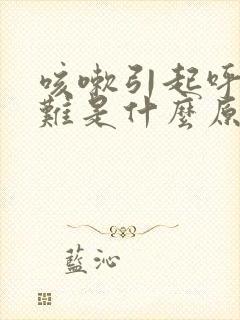 咳嗽引起呼
難是什麼原
藍沁